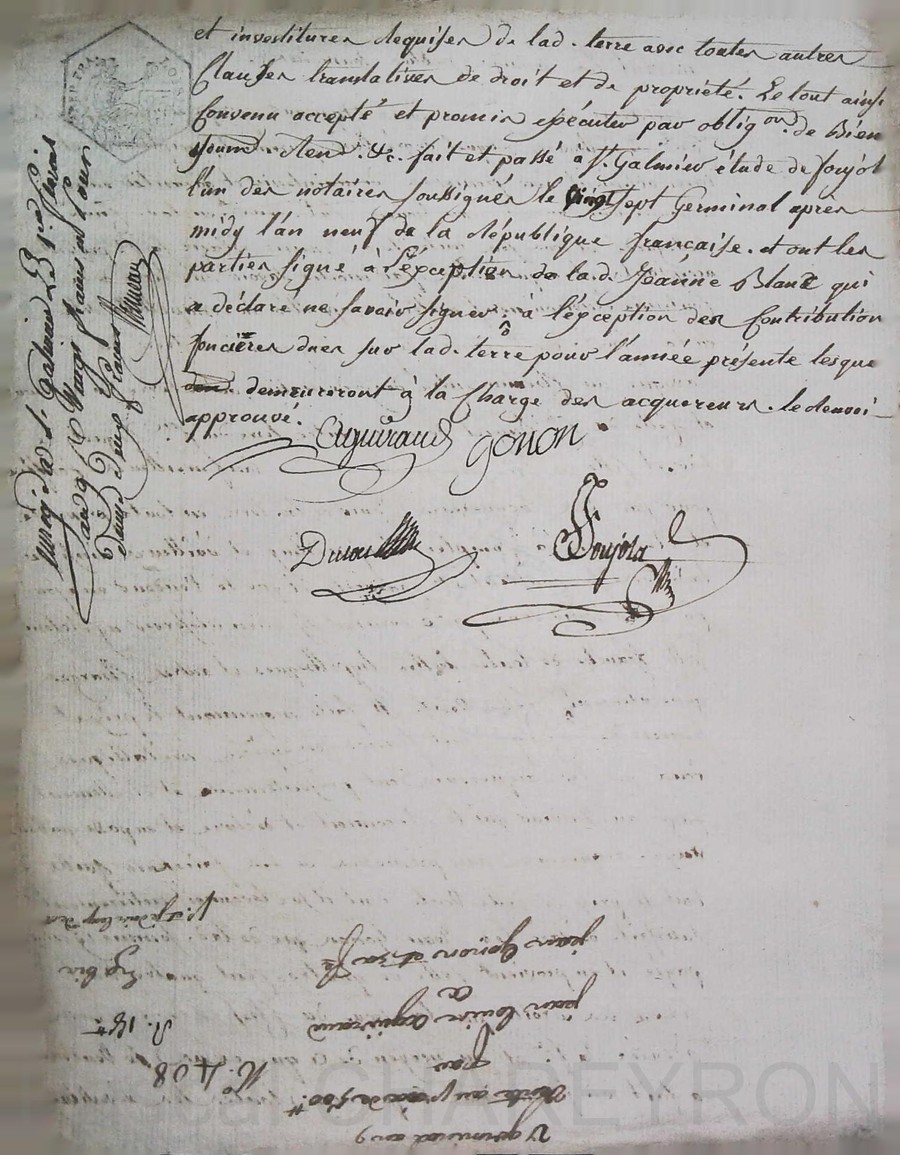 et investitures requises de lad. terre avec toutes autres
Clauses translatives de droit et de propriété. Le tout ainsi
Convenu accepté et promis exécuter par oblig.on de Bien
soum. Ren. &c. fait et passé à St. Galmier étude de Soujol
l'un des notaires soussignés le vingt sept Germinal après
midy l'an neuf de la République française. et ont les
parties signé à l'éxception de lad. Jeanne Blanc qui
a déclaré ne savoir signer, à l'éxception des Contribution
foncières dues sur lad. terre pour l'année présente lesque
demeureront à la Charge des acquereurs. le renvoi
approuvé.
Aguiraud gonon
Soujol
enreg. à St. Galmier le
francs
jean gonon et sa fe
à
jean Louis aguiraud
par
Vente au prix de 500.tt
germinal an 9
No. 408
R. 15tt